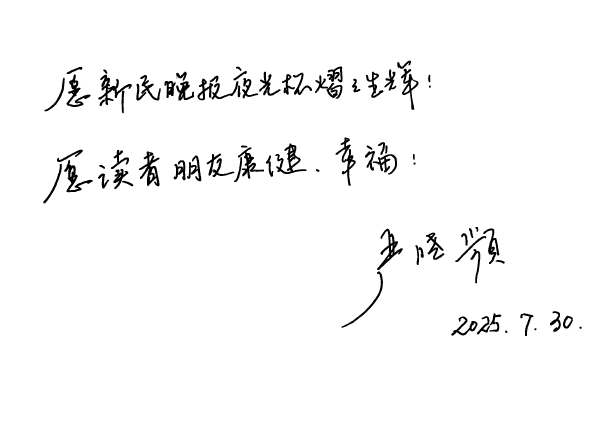 愿新民晚报夜光杯熠熠生辉！
愿读者朋友康健、幸福！
严晓频
2025.7.30.